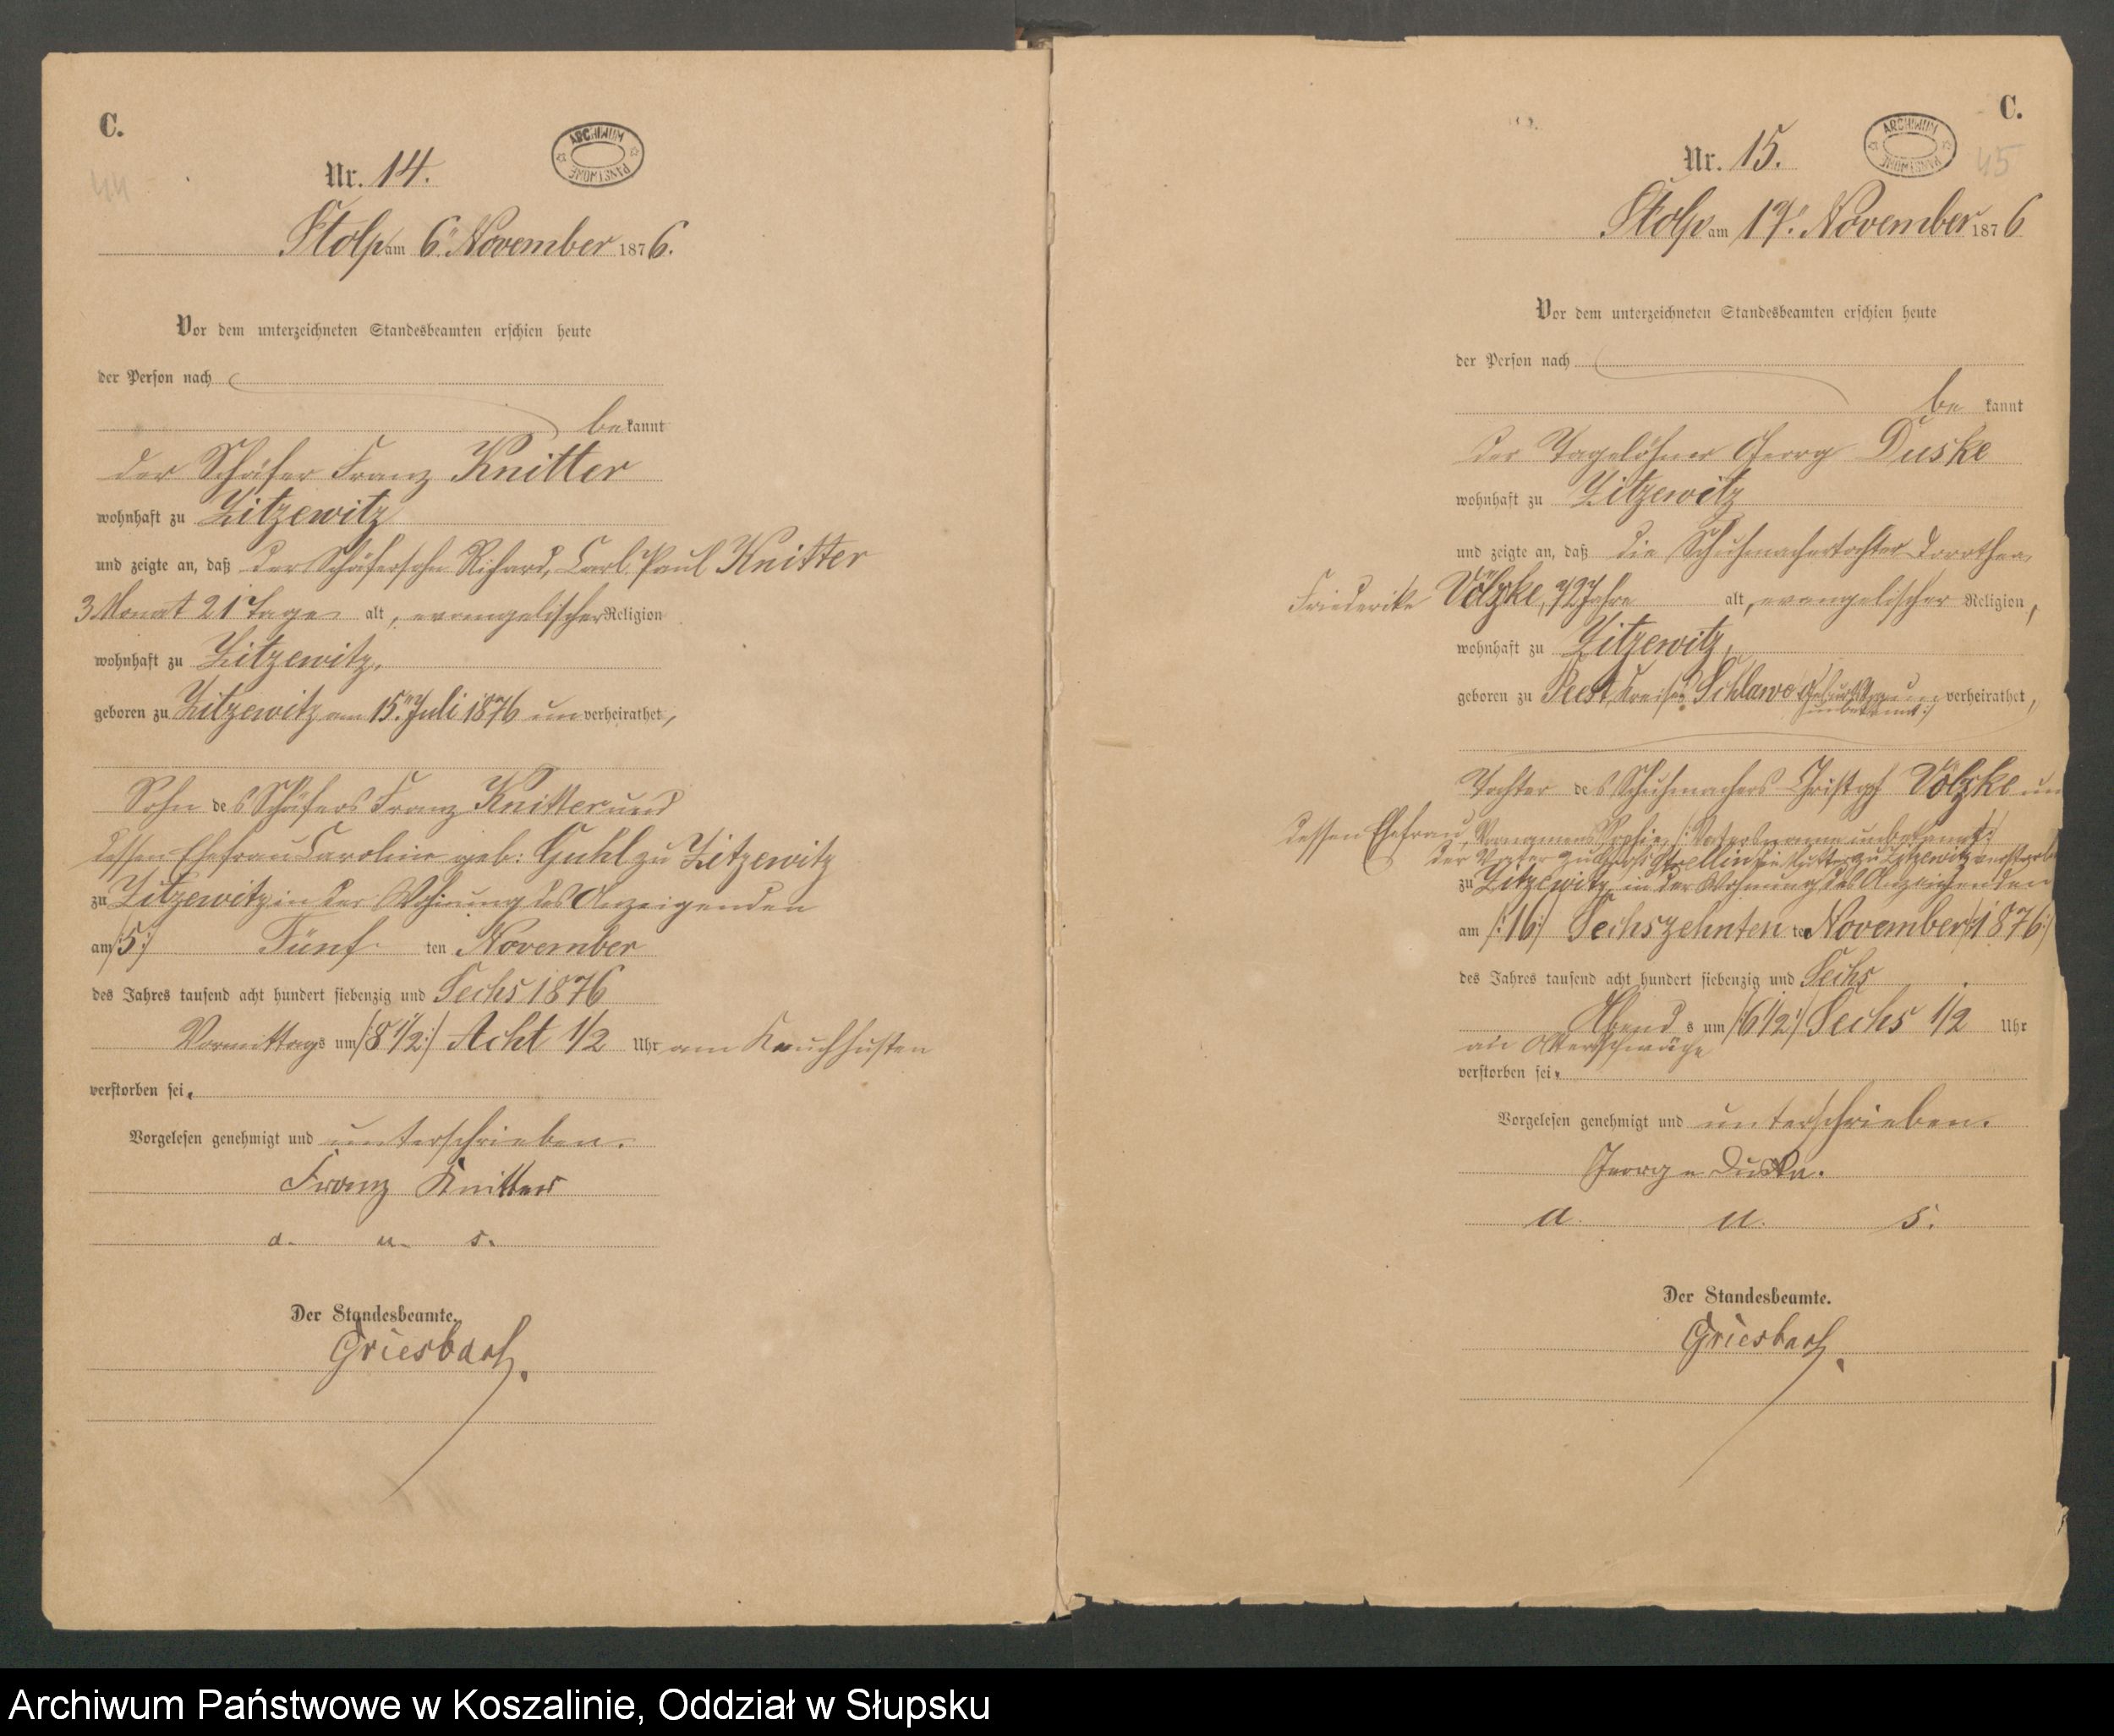 C.
ARCHIWUM PAŃSTWOWE
44
Nr. 14.
Stolp am 6. November 1876.
Vor dem unterzeichneten Standesbeamten erschien heute
der Person nach
bekannt
der Schäfer Franz Knitter
wohnhaft zu Zitzewitz
und zeigte an, daß der Schäfersohn Richard, Carl Paul Knitter
3 Monat 21 Tage alt, evangelischer Religion
wohnhaft zu Zitzewitz,
geboren zu Zitzewitz am 15. Juli 1876 unverheirathet,
Sohn des Schäfers Franz Knitter und
dessen Ehefrau Caroline geb: Guhl zu Zitzewitz
zu Zitzewitz in der Wohnung des Anzeigenden
am /:5:/ Fünf ten November
des Jahres tausend acht hundert siebenzig und Sechs 1876
Vormittags um /:8 1/2:/ Acht 1/2 Uhr am Keuchhusten
verstorben sei.
Vorgelesen genehmigt und unterschrieben.
Franz Knitter
a. u. s.
Der Standesbeamte.
Griesbach.
C.
ARCHIWUM PAŃSTWOWE
45
Nr. 15.
Stolp am 17. November 1876
Vor dem unterzeichneten Standesbeamten erschien heute
der Person nach
be kannt
der Tagelöhner Georg Duske
wohnhaft zu Zitzewitz
und zeigte an, daß die Schuhmachertochter Dorothea
Friederike Völzke, 72 Jahre alt, evangelischer Religion,
wohnhaft zu Zitzewitz,
geboren zu Peest, Kreises Schlawe /:Geburtstag un verheirathet,
unbekannt:/
Tochter des Schuhmachers Christoph Völzke un
dessen Ehefrau, Vornamens Sophie, /:Vatersname unbekannt:/
der Vater zu Strellin die Mutter zu Zitzewitz verstorben
zu Zitzewitz, in der Wohnung des Anzeigenden
am /:16:/ Sechszehnten ten November /:1876:/
des Jahres tausend acht hundert siebenzig und Sechs
Abend s um /:6 1/2:/ Sechs 1/2 Uhr
an Altersschwäche
verstorben sei.
Vorgelesen genehmigt und unterschrieben.
George Duske.
a. u. s.
Der Standesbeamte.
Griesbach.
Archiwum Państwowe w Koszalinie, Oddział w Słupsku